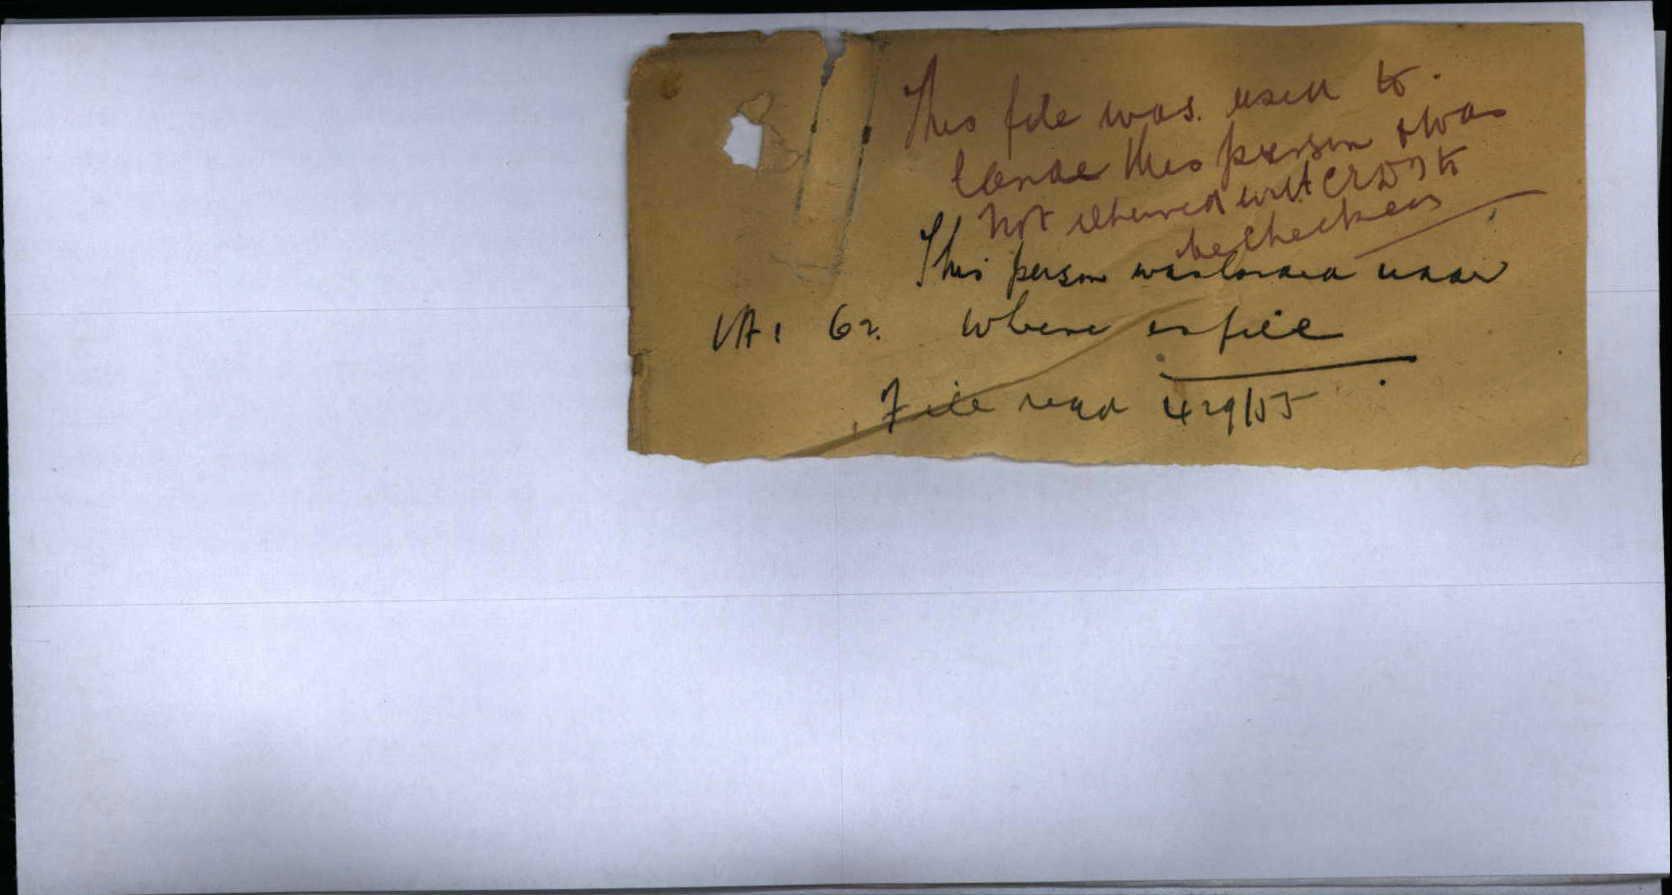 This file was used to
lande this person & was
not returned with CR 
be checked
This person was landed under
VA1 62. Where is file
File read 429/55